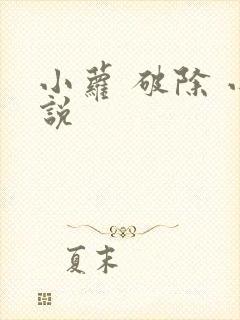 小蘿 破除 小
說
夏末